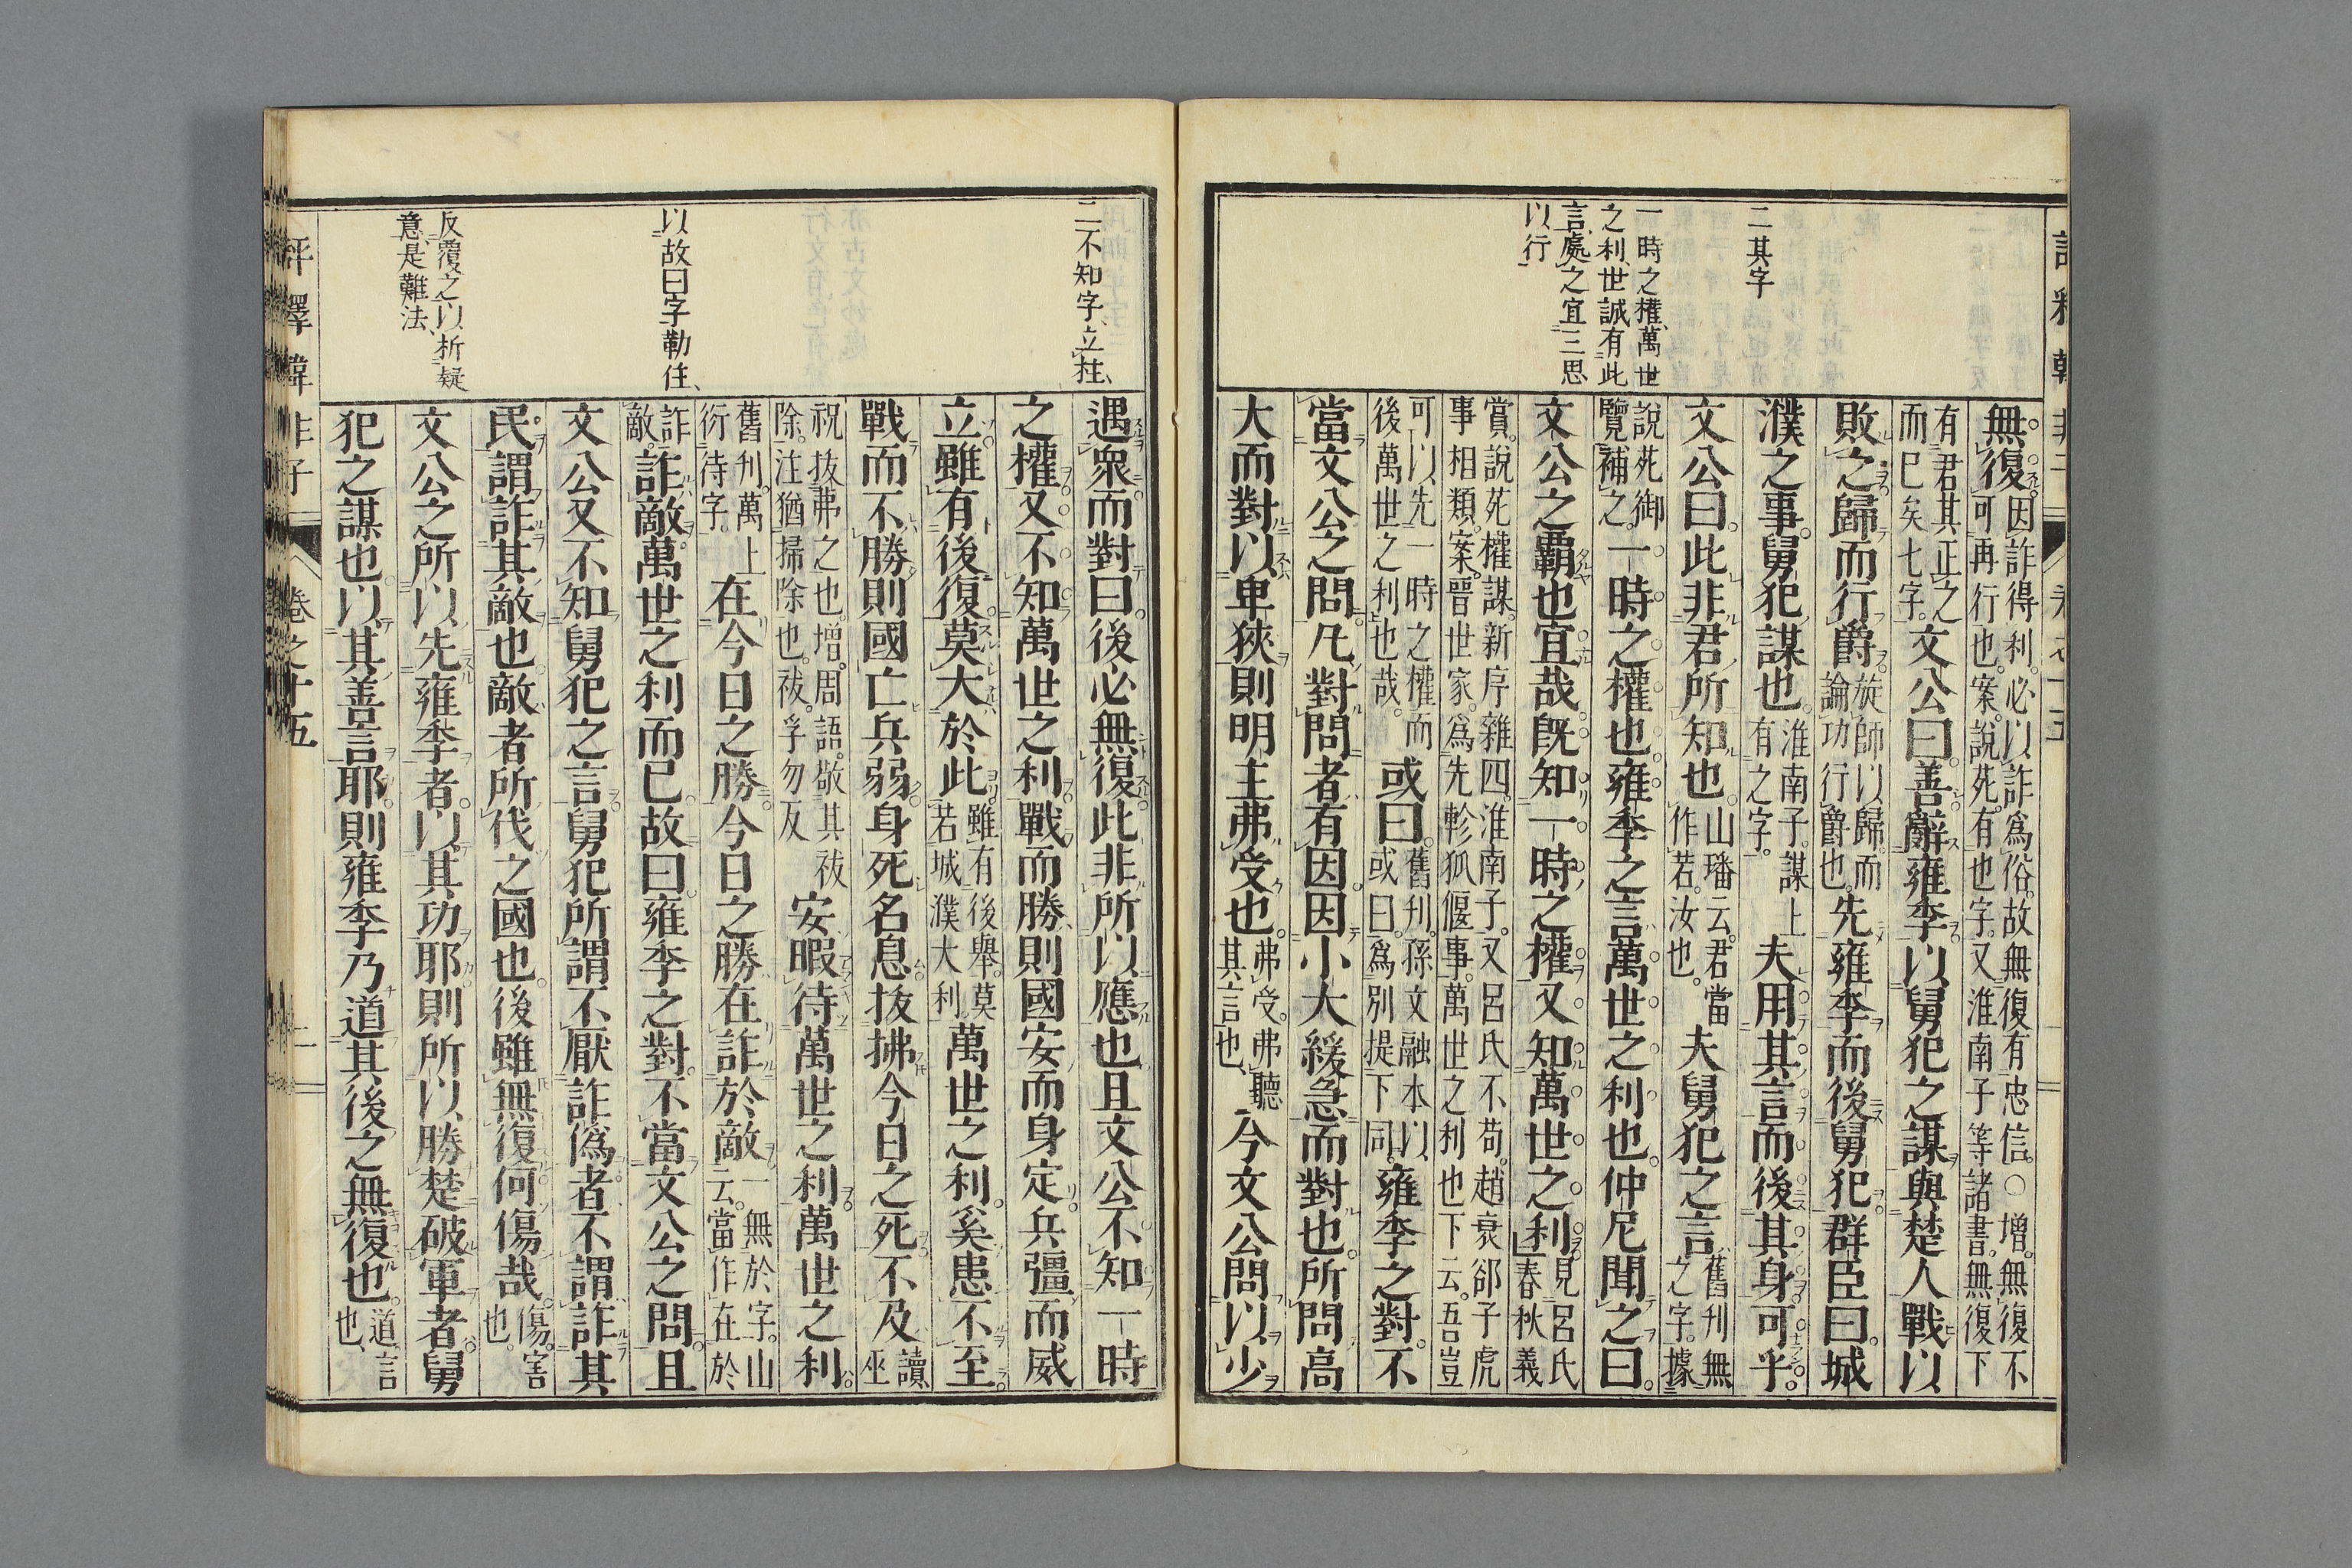 二其字
一時之權、萬世
之利、世誠有此
言處之宜三思
以行
無復因詐得利。必以詐爲俗。故無復有忠信。○增。無復不
可再行也。案。說苑。有也字。又淮南子等諸書。無復下
有君其正之
而已矣七字。文公曰。善。辭雍季。以舅犯之謀與楚人戰以
敗之。歸而行爵。旋師以歸。而
論功行爵也。先雍季而後舅犯。群臣曰。城
濮之事。舅犯謀也。淮南子。謀上
有之字。夫用其言而後其身可乎。
文公曰。此非君所知也。山璠云。君當
作若。汝也。夫舅犯之言舊刋無
之字。據
說苑御
覽補之。一時之權也。雍季之言萬世之利也。仲尼聞之曰。
文公之霸也宜哉。既知一時之權。又知萬世之利。見呂氏
春秋義
賞。說苑權謀。新序雜四。淮南子。又呂氏不苟。趙衰郤子虎
事相類。案。晉世家。爲先軫狐偃事。萬世之利也下云。吾豈
可以先一時之權而
後萬世之利也哉。或曰。舊刋。孫文融本。以
或曰。爲別提下同。雍季之對。不
當文公之問。凡對問者。有因。因小大緩急而對也。所問高
大而對以卑狹。則明主弗受也。弗受。弗聽
其言也、今文公問以少
二不知字、立拄、
以故曰字勒住、
反覆之以析疑
意、是難法、
遇衆。而對曰。後必無復。此非所以應也。且文公不知一時
之權。又不知萬世之利。戰而勝。則國安而身定。兵彊而威
立。雖有後復。莫大於此。雖有後舉。莫
若城濮大利。萬世之利。奚患不至。
戰而不勝。則國亡兵弱。身死名息。拔拂今日之死不及讀
巫
祝拔弗之也。增。周語。敬其祓
除。注猶掃除也。祓。孚勿反安暇待萬世之利。萬世之利。
舊刋。萬上
衍待字。在今日之勝。今日之勝在詐於敵一無於字。山
云。當作在於
詐
敵。詐敵。萬世之利而已。故曰。雍季之對不當文公之問。且
文公又不知舅犯之言。舅犯所謂不厭詐僞者。不謂詐其
民。謂詐其敵也。敵者所伐之國也。後雖無復何傷哉。傷。害
也。
文公之所以先雍季者。以其功耶。則所以勝楚破軍者。舅
犯之謀也。以其善言耶。則雍季乃道其後之無復也。道。言
也、
評釋韓非子
卷之十五
二